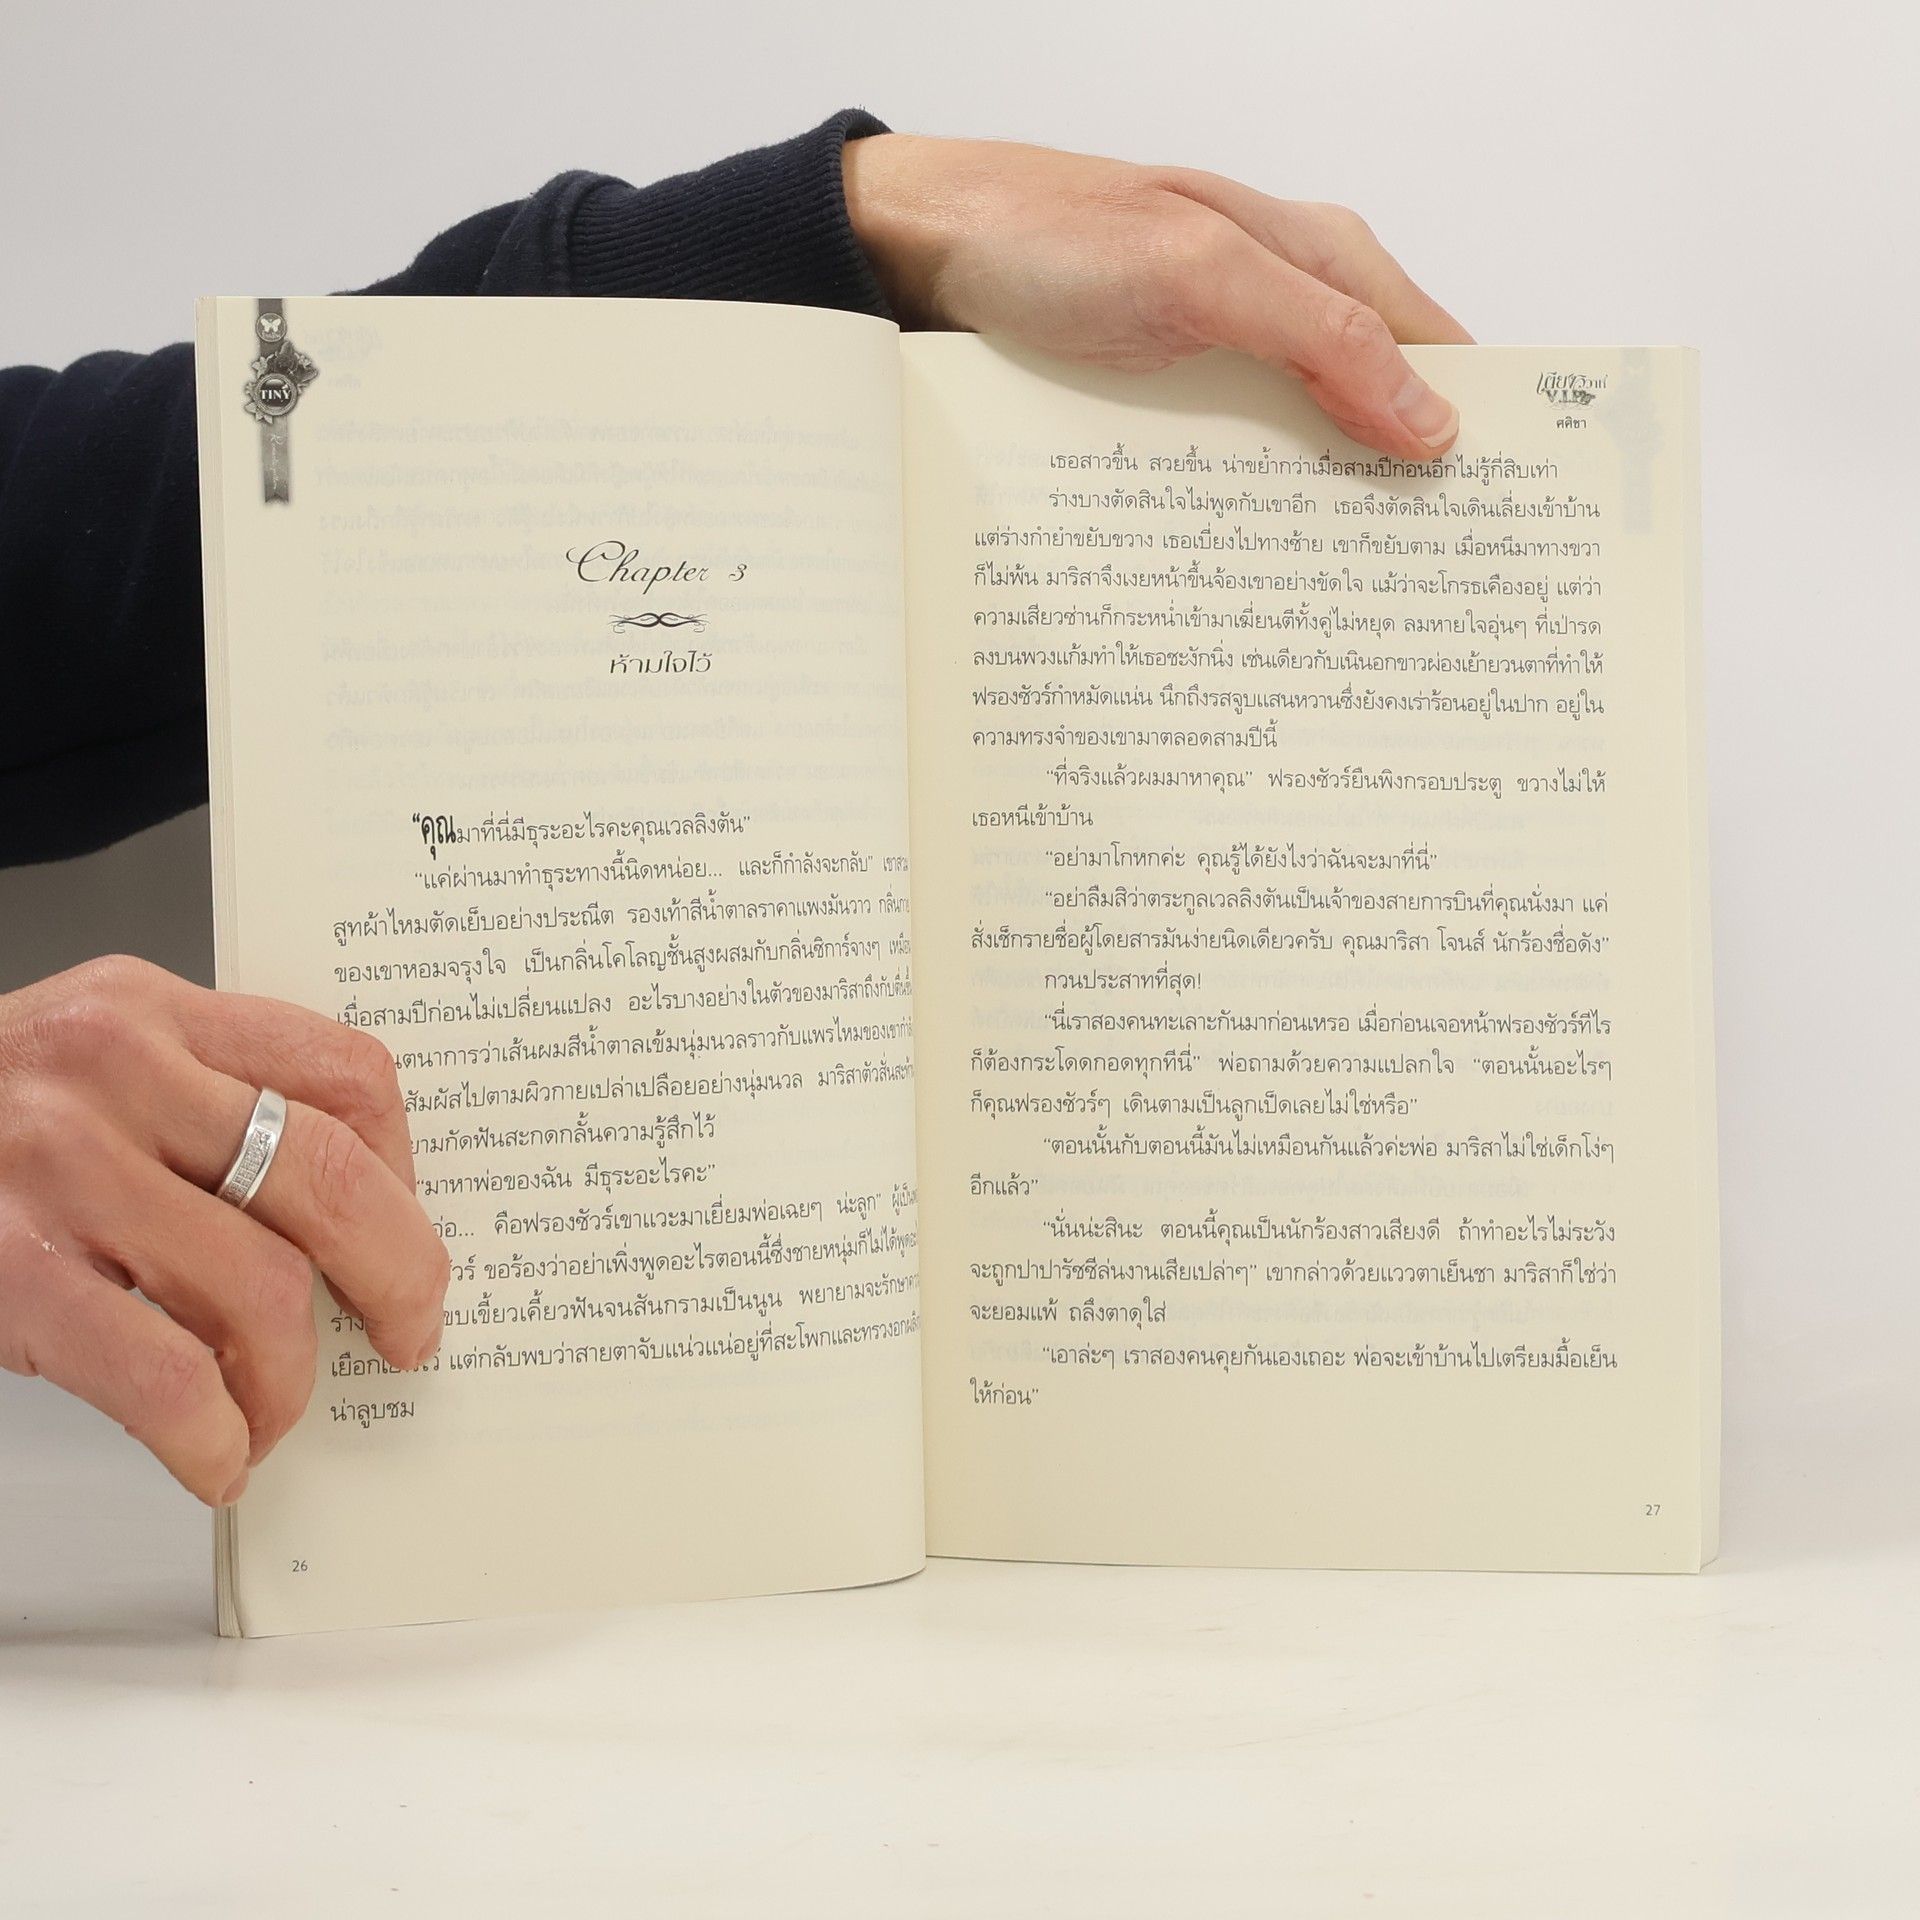 TINY
Chapter 3
ห้ามใจไว้
“คุณมาที่นี่มีธุระอะไรคะคุณเวลลิงตัน”
“แค่ผ่านมาทำธุระทางนี้นิดหน่อย... และก็กำลังจะกลับ” เขาสวม
สูทผ้าไหมตัดเย็บอย่างประณีต รองเท้าสีน้ำตาลราคาแพงมันวาว กลิ่นกาย
ของเขาหอมจรุงใจ เป็นกลิ่นโคโลญชั้นสูงผสมกับกลิ่นซิการ์จางๆ เหมือน
เมื่อสามปีก่อนไม่เปลี่ยนแปลง อะไรบางอย่างในตัวของมาริสาถึงกับตื่นขึ้น
นตนาการว่าเส้นผมสีน้ำตาลเข้มนุ่มนวลราวกับแพรไหมของเขา
สัมผัสไปตามผิวกายเปล่าเปลือยอย่างนุ่มนวล มาริสาตัวสั่นสะท้าน
ยามกัดฟันสะกดกลั้นความรู้สึกไว้
“มาหาพ่อของฉัน มีธุระอะไรคะ”
อ่อ... คือฟรองซัวร์เขาแวะมาเยี่ยมพ่อเฉยๆ น่ะลูก” ผู้เป็น
ัวร์ ขอร้องว่าอย่าเพิ่งพูดอะไรตอนนี้ซึ่งชายหนุ่มก็ไม่ได้พูดอะไร
ร่าง ขบเขี้ยวเคี้ยวฟันจนสันกรามเป็นนูน พยายามจะรักษา
เยือกเย็นไว้ แต่กลับพบว่าสายตาจับแน่วแน่อยู่ที่สะโพกและทรวงอก
น่าลูบชม
26
V.I.P
ศศิชา
เธอสาวขึ้น สวยขึ้น น่าขย้ำกว่าเมื่อสามปีก่อนอีกไม่รู้กี่สิบเท่า
ร่างบางตัดสินใจไม่พูดกับเขาอีก เธอจึงตัดสินใจเดินเลี่ยงเข้าบ้าน
แต่ร่างกำยำขยับขวาง เธอเบี่ยงไปทางซ้าย เขาก็ขยับตาม เมื่อหนีมาทางขวา
ก็ไม่พ้น มาริสาจึงเงยหน้าขึ้นจ้องเขาอย่างขัดใจ แม้ว่าจะโกรธเคืองอยู่ แต่ว่า
ความเสียวซ่านก็กระหน่ำเข้ามาเฆี่ยนตีทั้งคู่ไม่หยุด ลมหายใจอุ่นๆ ที่เป่ารด
ลงบนพวงแก้มทำให้เธอชะงักนิ่ง เช่นเดียวกับเนินอกขาวผ่องเย้ายวนตาที่ทำให้
ฟรองซัวร์กำหมัดแน่น นึกถึงรสจูบแสนหวานซึ่งยังคงเร่าร้อนอยู่ในปาก อยู่ใน
ความทรงจำของเขามาตลอดสามปีนี้
“ที่จริงแล้วผมมาหาคุณ” ฟรองซัวร์ยืนพิงกรอบประตู ขวางไม่ให้
เธอหนีเข้าบ้าน
“อย่ามาโกหกค่ะ คุณรู้ได้ยังไงว่าฉันจะมาที่นี่”
“อย่าลืมสิว่าตระกูลเวลลิงตันเป็นเจ้าของสายการบินที่คุณนั่งมา แค่
สั่งเช็กรายชื่อผู้โดยสารมันง่ายนิดเดียวครับ คุณมาริสา โจนส์ นักร้องชื่อดัง”
กวนประสาทที่สุด!
“นี่เราสองคนทะเลาะกันมาก่อนเหรอ เมื่อก่อนเจอหน้าฟรองซัวร์ทีไร
ก็ต้องกระโดดกอดทุกทีนี่” พ่อถามด้วยความแปลกใจ “ตอนนั้นอะไรๆ
ก็คุณฟรองซัวร์ๆ เดินตามเป็นลูกเป็ดเลยไม่ใช่หรือ”
“ตอนนั้นกับตอนนี้มันไม่เหมือนกันแล้วค่ะพ่อ มาริสาไม่ใช่เด็กโง่ๆ
อีกแล้ว”
“นั่นน่ะสินะ ตอนนี้คุณเป็นนักร้องสาวเสียงดี ถ้าทำอะไรไม่ระวัง
จะถูกปาปารัซซีล่นงานเสียเปล่าๆ” เขากล่าวด้วยแววตาเย็นชา มาริสาก็ใช่ว่า
จะยอมแพ้ ถลึงตาดุใส่
“เอาล่ะๆ เราสองคนคุยกันเองเถอะ พ่อจะเข้าบ้านไปเตรียมมื้อเย็น
ให้ก่อน”
27